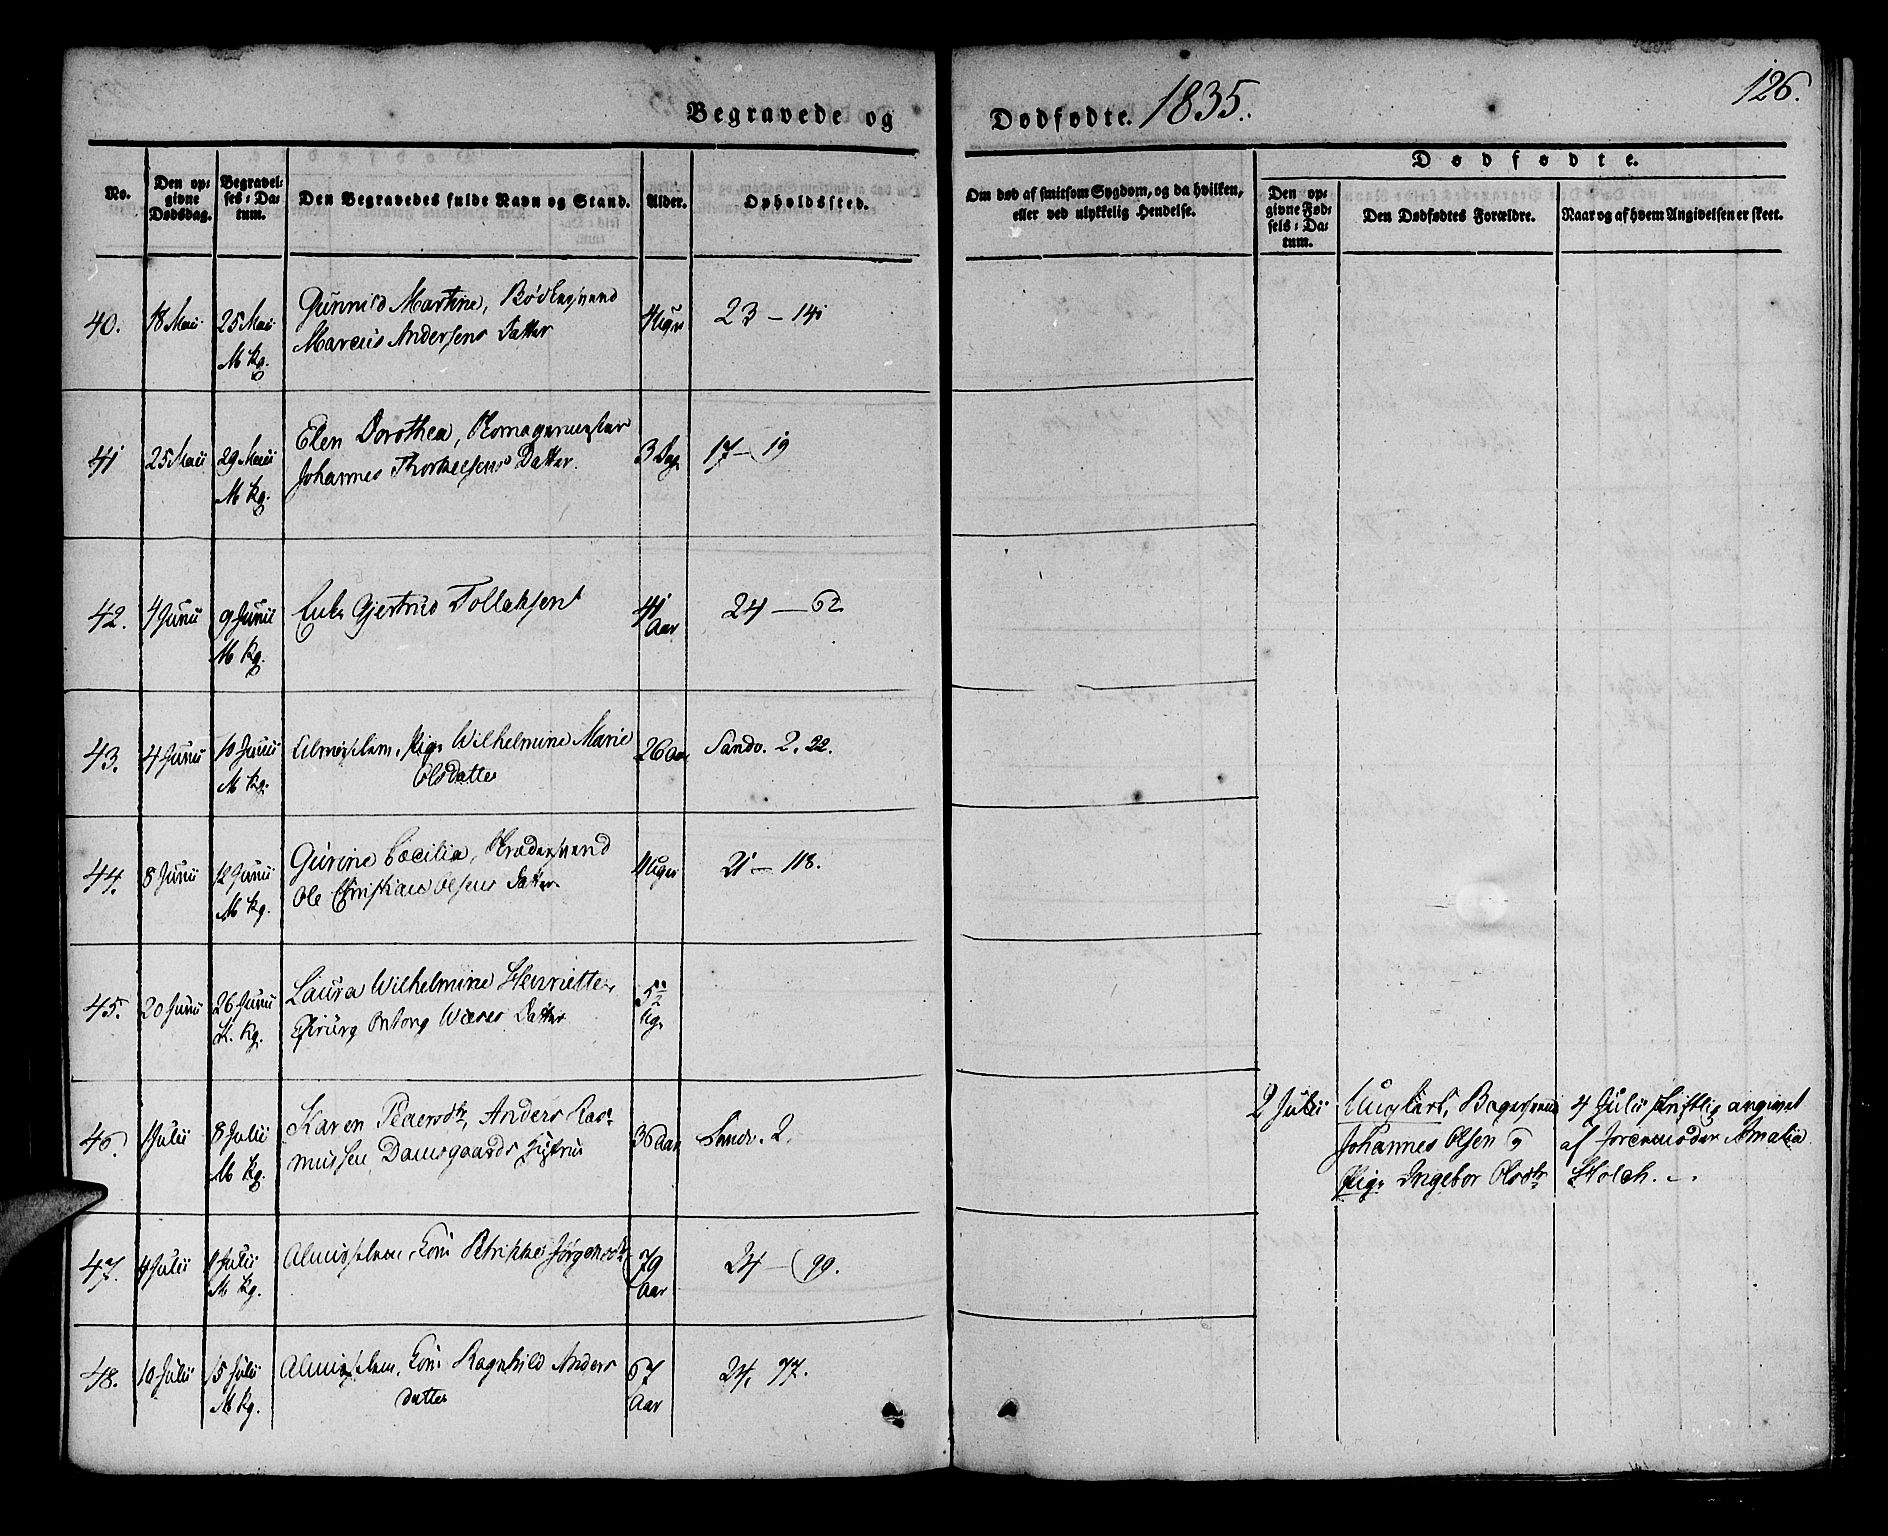 Begravede og Dødfødte. 1835. 126.
No.
Den opgivne Dødsdag.
Begravelses-Datum.
Den Begravedes fulde Navn og Stand.
Alder.
Opholdssted.
Om død af smitsom Sygdom, og da hvilken, eller ved ulykkelig Hendelse.
Dødfødte.
Den opgivne Fødsels-Datum.
Den Dødfødtes Forældre.
Naar og af hvem Angivelsen er skeet.
40. 18 Maii 25 Maii Gunnild Martine, Bødkersvend 23 - 14
M kg. Marcus Andersens Datter
41 25 Maii 29 Maii Elen Dorothea, 3 Dag 17 - 19
M kg. Johannes Thorkelsens Datter.
42. 4 Junii 9 Junii Enke Gjertrud Tollaksen 41 24 - 62
M kg. Aar
43. 4 Junii 10 Junii Almislem, Pige Wilhelmine Marie 26 Aar Sandv. 2. 22.
M kg. Olsdatter
44. 8 Junii 12 Junii Gurine Cæcilia, 21 - 118.
M kg. Ole Christian Olsens Datter
45. 20 Junii 26 Junii Laura Wilhelmine Henriette, 5½
K. kg. Chirurg Wærers Datter Ug.
46. Julii 8 Julii Karen Pedersdtr, Anders Ras- 36 Aar Sandv. 2.
M kg. mussen Damsgaards Hustrue
2 Julii Johannes Olsen og Pige Ingebor Olsdtr
4 Julii skriftlig angivet af Jordemoder Amalia Holch.
47. 4 Julii Julii Almislem, Kone Jørgensdtr 79 24 - 99.
M kg. Aar
48. 10 Julii 15 Julii Almislem, Kone Ragnhild Anders 67 24, 77.
M kg. datter Aar